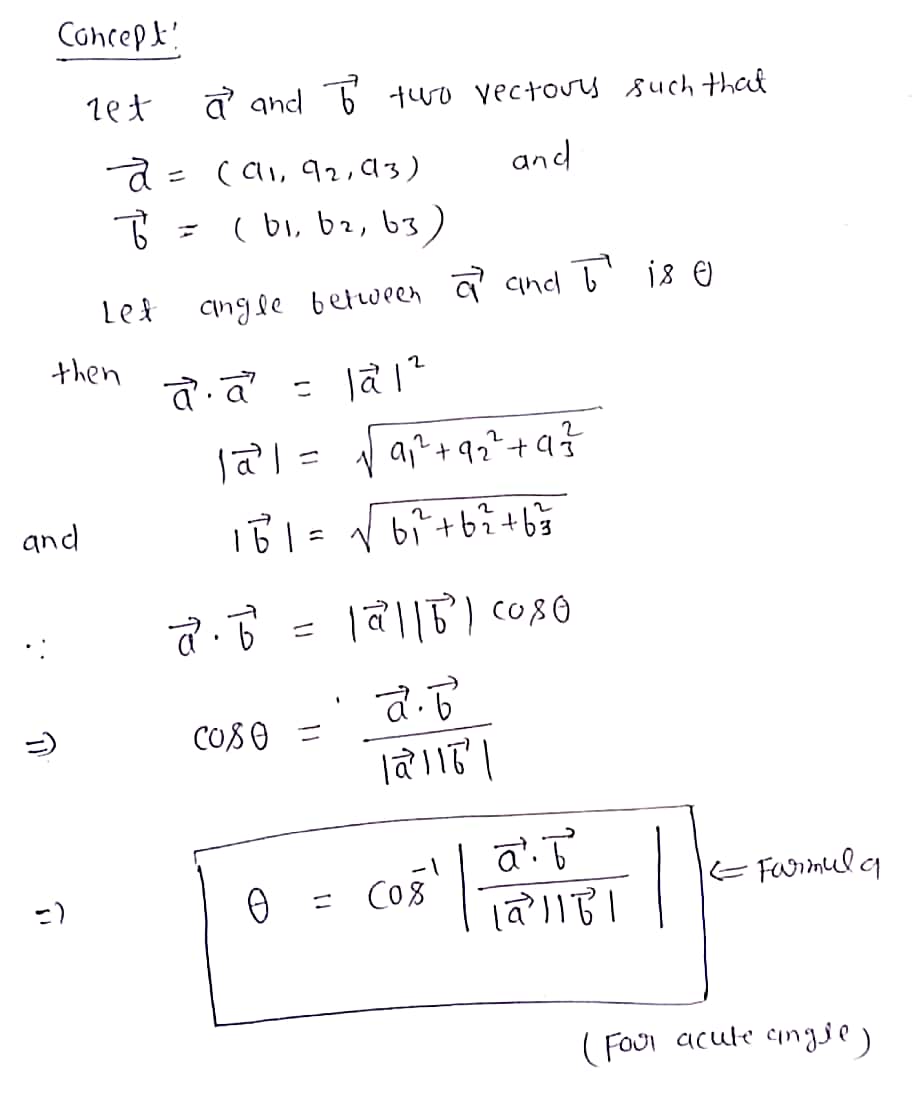 Concept:
let a⃗ and b⃗ two vectors such that
a⃗ = (a₁, a₂, a₃) and
b⃗ = (b₁, b₂, b₃)
Let angle between a⃗ and b⃗ is θ
then a⃗.a⃗ = |a⃗|²
|a⃗| = √(a₁²+a₂²+a₃²)
and |b⃗| = √(b₁²+b₂²+b₃²)
∵ a⃗.b⃗ = |a⃗||b⃗| cosθ
⇒ cosθ = a⃗.b⃗ / |a⃗||b⃗|
⇒ θ = cos⁻¹ | a⃗.b⃗ / |a⃗||b⃗| | ⇐ Formula
(For acute angle)